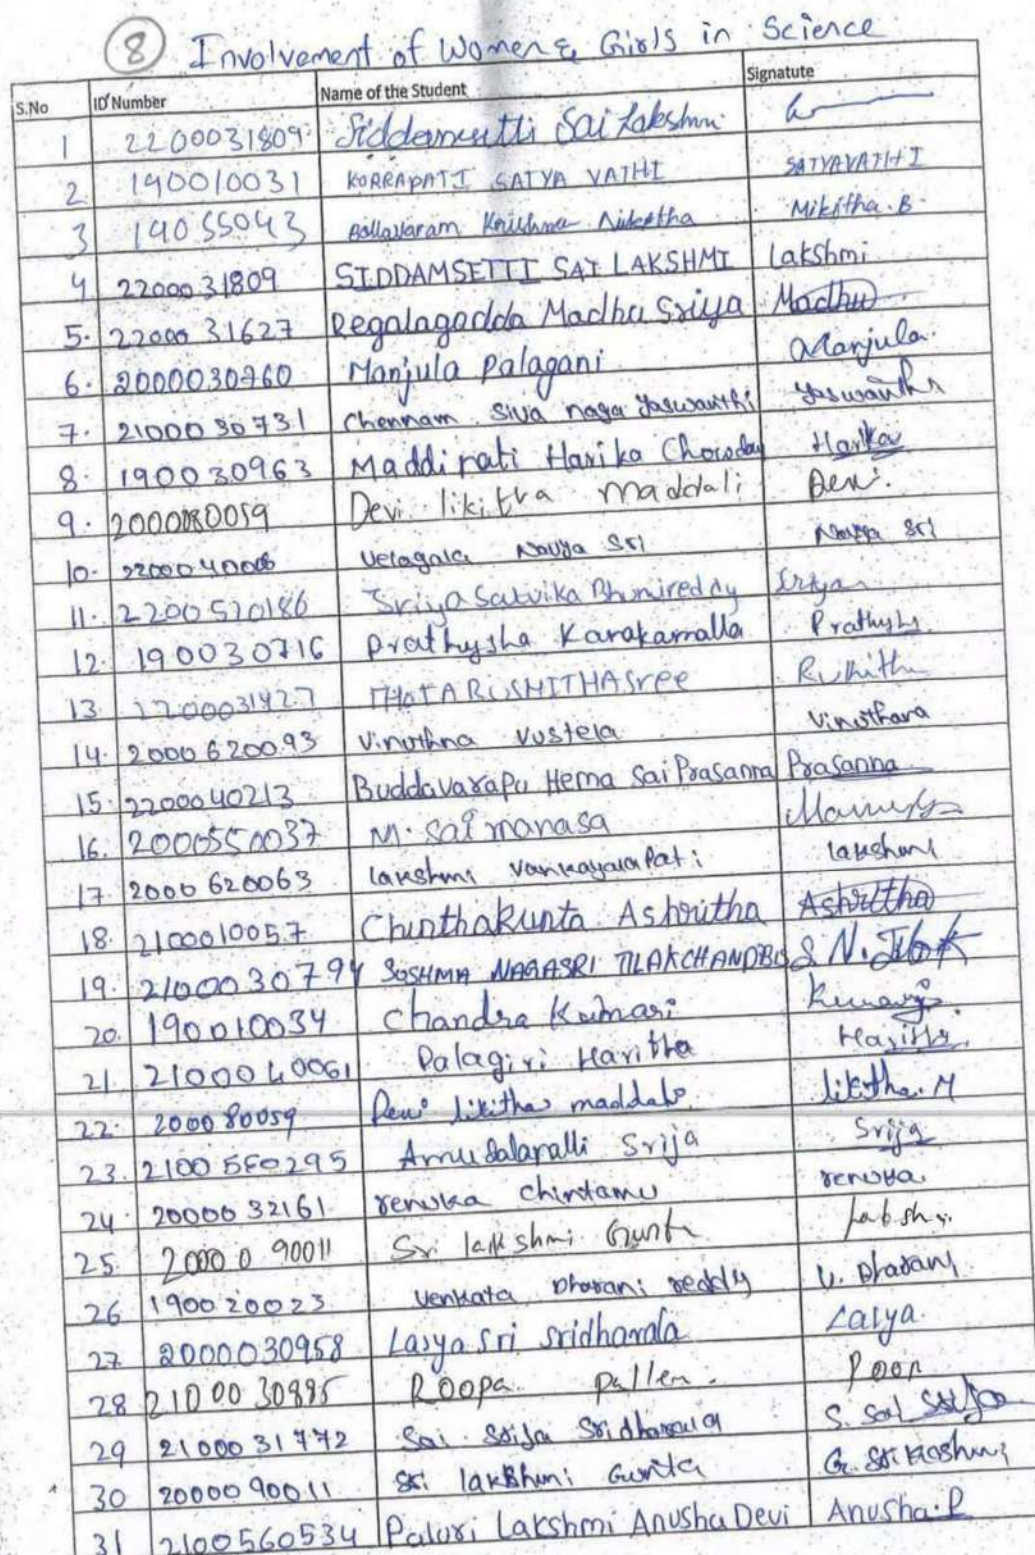 8 Involvement of Women & Girls in Science
S.No ID Number Name of the Student Signatute
1 2200031809 Siddamsetti Sai Lakshmi
2 190010031 KORRAPATI SATYA VATHI SATYAVATHI
3 19055043 Krishna Nikitha Nikitha.B
4 2200031809 SIDDAMSETTI SAI LAKSHMI Lakshmi
5. 2200031627 Regalagadda Madhu Sriya Madhu
6. 2000030760 Manjula Palagani Manjula
7. 2100030731 Chennam Siva naga Yaswanthi Yaswanthi
8. 190030963 Maddipati Harika Chowday Harika
9. 2000080059 Devi likitha maddali Devi.
10. 2200040006 Velagala Navya Sri Navya Sri
11. 2200520186 Sriya Satvika Bhumireddy Sriya
12. 190030716 Prathysha Karakamalla Prathysh
13. THOTA RUSHITHA Sree Rushith
14. 2000620093 Vinuthna Vustela
15. 2200040213 Buddavarapu Hema Sai Prasanna Prasanna
16. 2000550037 M. Sai manasa
17. 2000620063 lakshmi Vankayalapati lakshmi
18. 2100010057 Chinthakunta Ashritha Ashritha
19. 2100030794 SUSHMA NAGASRI
20. 190010034 Chandra Kumari
21. 2100040061 Palagiri Haritha Haritha
22. 200080059 Devi likitha maddali likitha.M
23. 2100560295 Amudalapalli Srija Srija
24. 2000032161 renuka chintamu renuka
25. 2000090011 Sri lakshmi Gunt
26 190020023 Venkata Dharani reddy V. Dharani
27 2000030958 Lasya Sri Sridharala Lasya.
28 2100030885 Roopa pallem. Roop
29 2100031772 Sai Srija Sridharala S. Sai Srija
30 2000090011 Sri lakshmi Gunta G. Sri lakshmi
31 2100560534 Paluri Lakshmi Anusha Devi Anusha.P